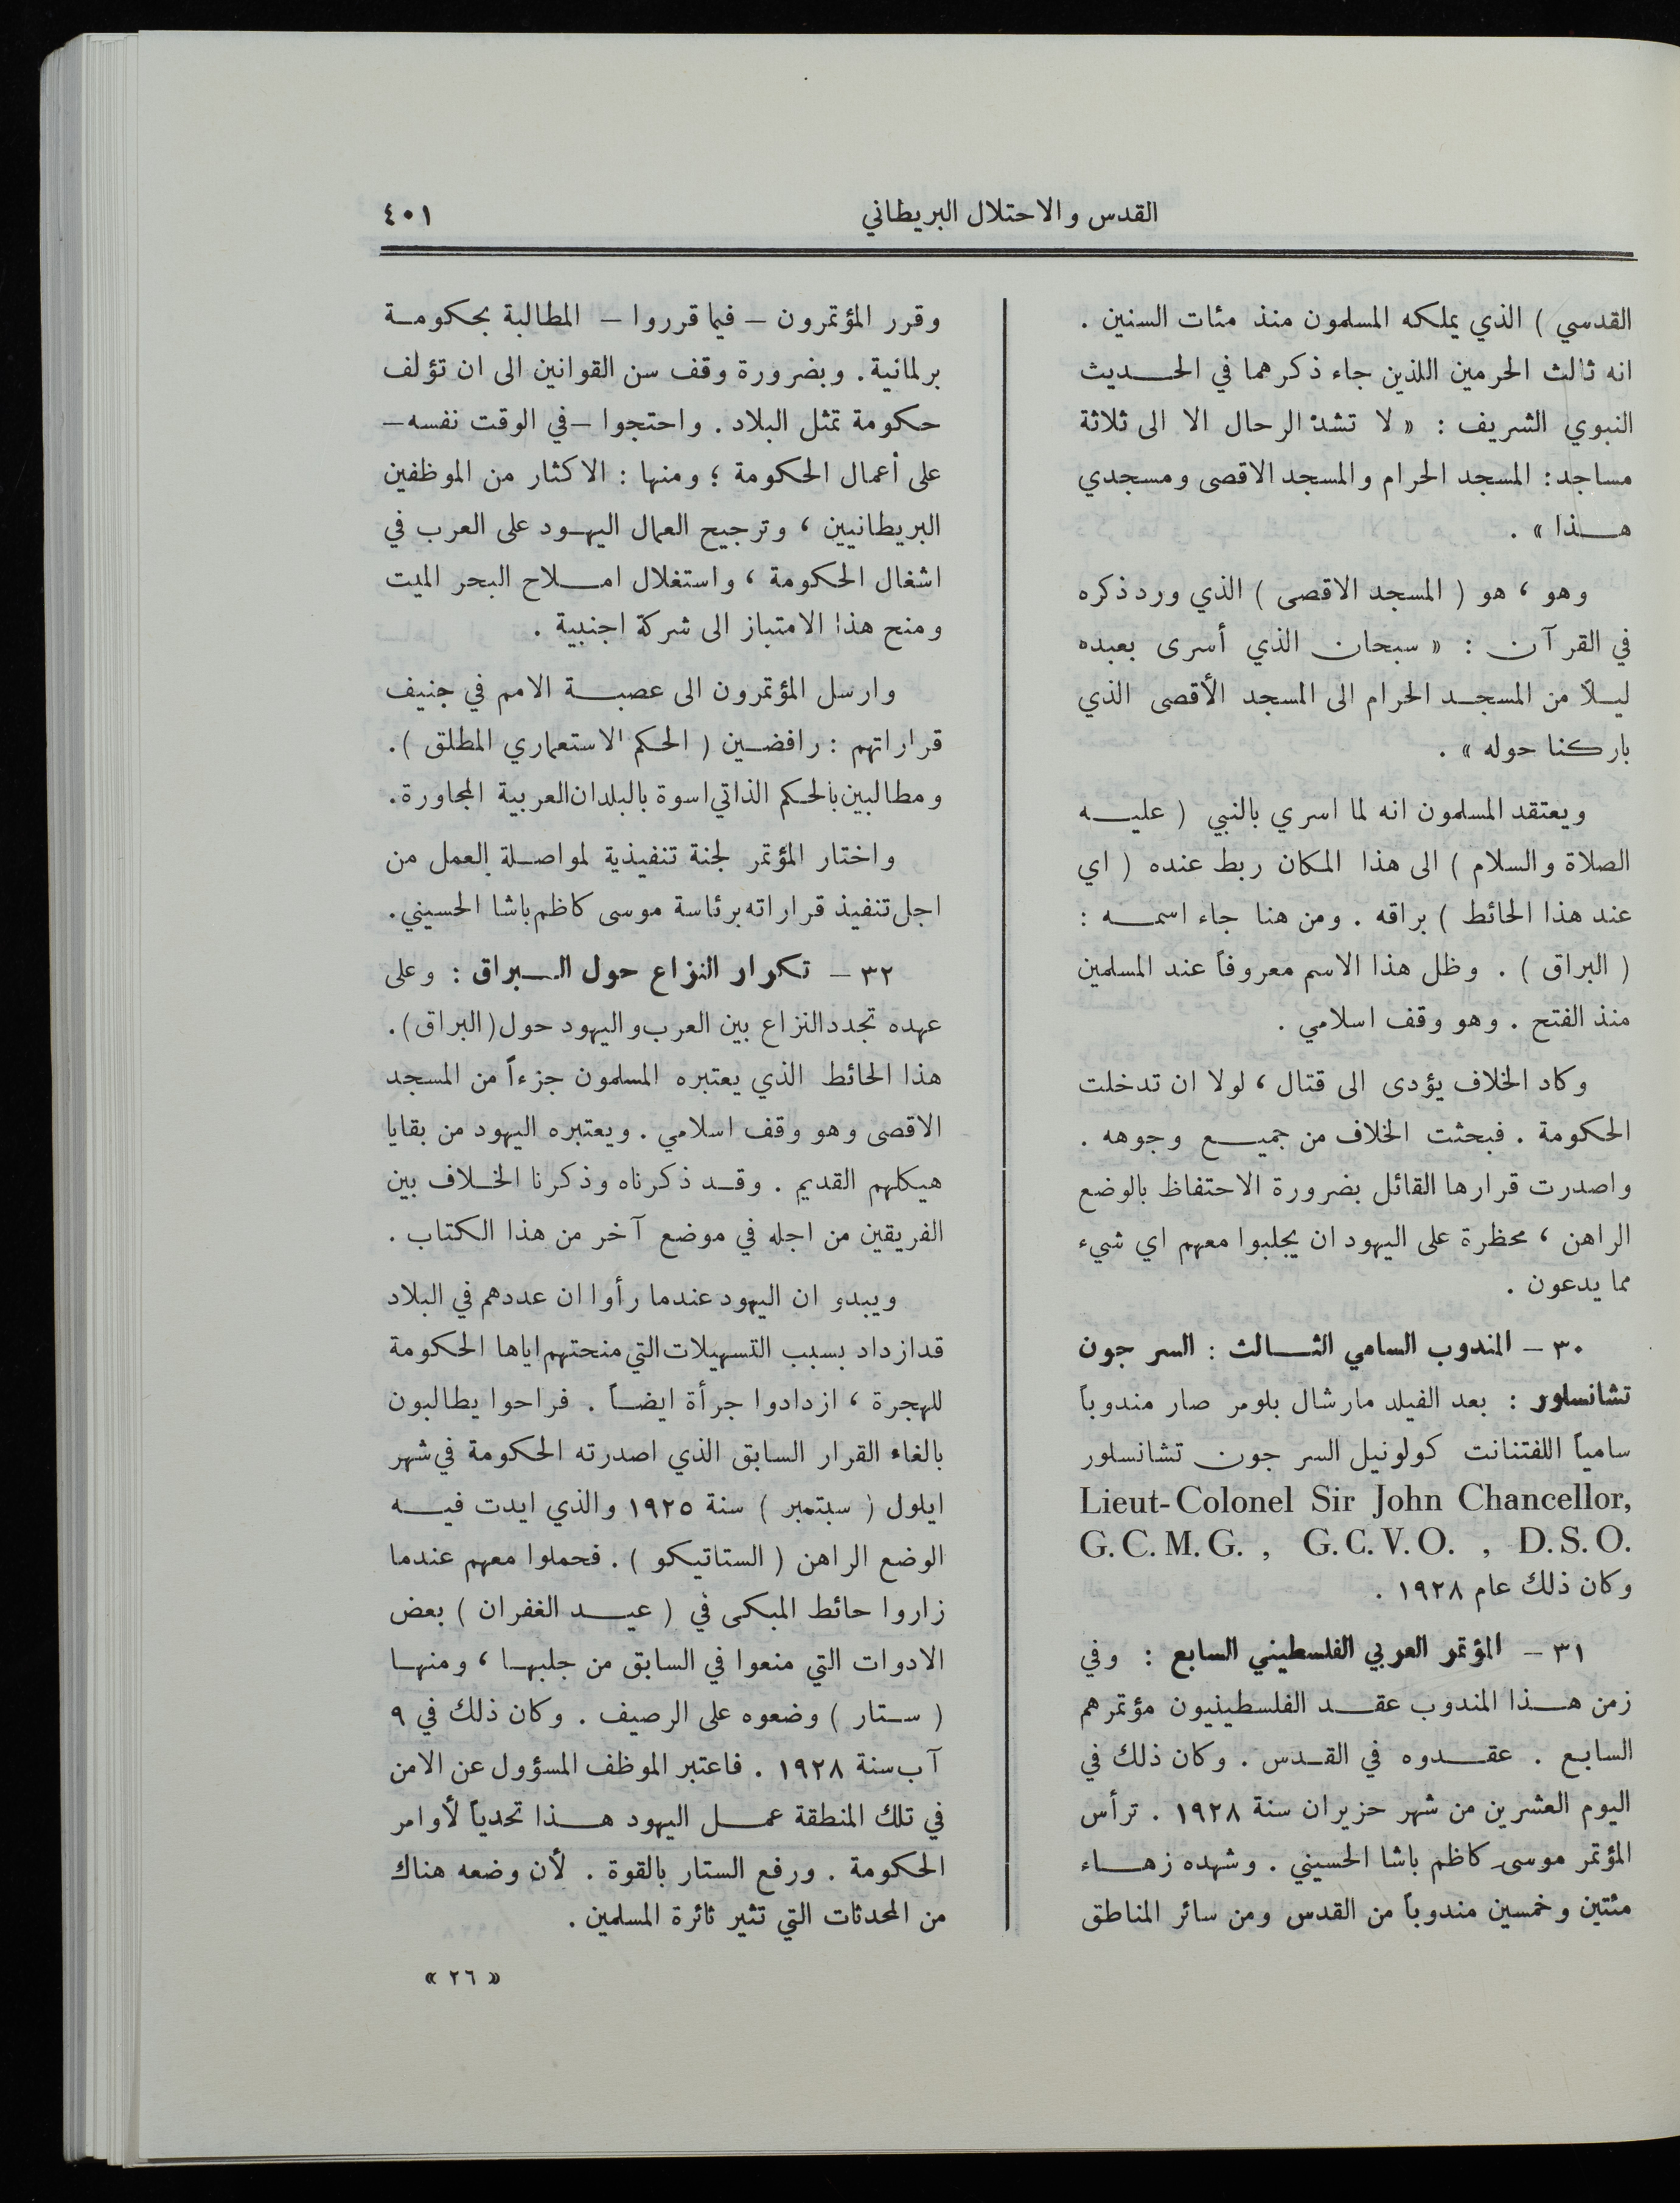 القدس والاحتلال البريطاني
٤٠١
القدسي ) الذي يملكه المسلمون منذ مئات السنين .
انه ثالث الحرمين اللذين جاء ذكرهما في الحديث
النبوي الشريف : « لا تشدّ الرحال الا الى ثلاثة
مساجد : المسجد الحرام والمسجد الاقصى ومسجدي
هذا » .
وهو ، هو ( المسجد الاقصى ) الذي ورد ذكره
في القرآن : « سبحان الذي أسرى بعبده
ليلاً من المسجد الحرام الى المسجد الأقصى الذي
باركنا حوله » .
ويعتقد المسلمون انه لما اسري بالنبي ( عليه
الصلاة والسلام ) الى هذا المكان ربط عنده ( اي
عند هذا الحائط ) براقه . ومن هنا جاء اسمه :
( البراق ) . وظل هذا الاسم معروفاً عند المسلمين
منذ الفتح . وهو وقف اسلامي .
وكاد الخلاف يؤدى الى قتال ، لولا ان تدخلت
الحكومة . فبحثت الخلاف من جميع وجوهه .
واصدرت قرارها القائل بضرورة الاحتفاظ بالوضع
الراهن ، محظرة على اليهود ان يجلبوا معهم اي شيء
مما يدعون .
٣٠ – المندوب السامي الثالث : السر جون
تشانسلور : بعد الفيلد مارشال بلومر صار مندوباً
سامياً اللفتنانت كولونيل السر جون تشانسلور
Lieut-Colonel Sir John Chancellor,
G.C.M.G. , G.C.V.O. , D.S.O.
وكان ذلك عام ١٩٢٨ .
٣١ – المؤتمر العربي الفلسطيني السابع : وفي
زمن هذا المندوب عقد الفلسطينيون مؤتمرهم
السابع . عقدوه في القدس . وكان ذلك في
اليوم العشرين من شهر حزيران سنة ١٩٢٨ . ترأس
المؤتمر موسى كاظم باشا الحسيني . وشهده زهاء
مئتين وخمسين مندوباً من القدس ومن سائر المناطق
وقرر المؤتمرون – فيما قرروا – المطالبة بحكومة
برلمانية . وبضرورة وقف سن القوانين الى ان تؤلف
حكومة تمثل البلاد . واحتجوا – في الوقت نفسه –
على أعمال الحكومة ؛ ومنها : الاكثار من الموظفين
البريطانيين ، وترجيح العمال اليهود على العرب في
اشغال الحكومة ، واستغلال املاح البحر الميت
ومنح هذا الامتياز الى شركة اجنبية .
وارسل المؤتمرون الى عصبة الامم في جنيف
قراراتهم : رافضين ( الحكم الاستعماري المطلق ) .
ومطالبين بالحكم الذاتي اسوة بالبلدان العربية المجاورة .
واختار المؤتمر لجنة تنفيذية لمواصلة العمل من
اجل تنفيذ قراراته برئاسة موسى كاظم باشا الحسيني .
٣٢ – تكرار النزاع حول البراق : وعلى
عهده تجدد النزاع بين العرب واليهود حول ( البراق ) .
هذا الحائط الذي يعتبره المسلمون جزءاً من المسجد
الاقصى وهو وقف اسلامي . ويعتبره اليهود من بقايا
هيكلهم القديم . وقد ذكرناه وذكرنا الخلاف بين
الفريقين من اجله في موضع آخر من هذا الكتاب .
ويبدو ان اليهود عندما رأوا ان عددهم في البلاد
قد ازداد بسبب التسهيلات التي منحتهم اياها الحكومة
للهجرة ، ازدادوا جرأة ايضاً . فراحوا يطالبون
بالغاء القرار السابق الذي اصدرته الحكومة في شهر
ايلول ( سبتمبر ) سنة ١٩٢٥ والذي ايدت فيه
الوضع الراهن ( الستاتيكو ) . فحملوا معهم عندما
زاروا حائط المبكى في ( عيد الغفران ) بعض
الادوات التي منعوا في السابق من جلبها ، ومنها
( ستار ) وضعوه على الرصيف . وكان ذلك في ٩
آب سنة ١٩٢٨ . فاعتبر الموظف المسؤول عن الامن
في تلك المنطقة عمل اليهود هذا تحدياً لأوامر
الحكومة . ورفع الستار بالقوة . لأن وضعه هناك
من المحدثات التي تثير ثائرة المسلمين .
« ٢٦ »